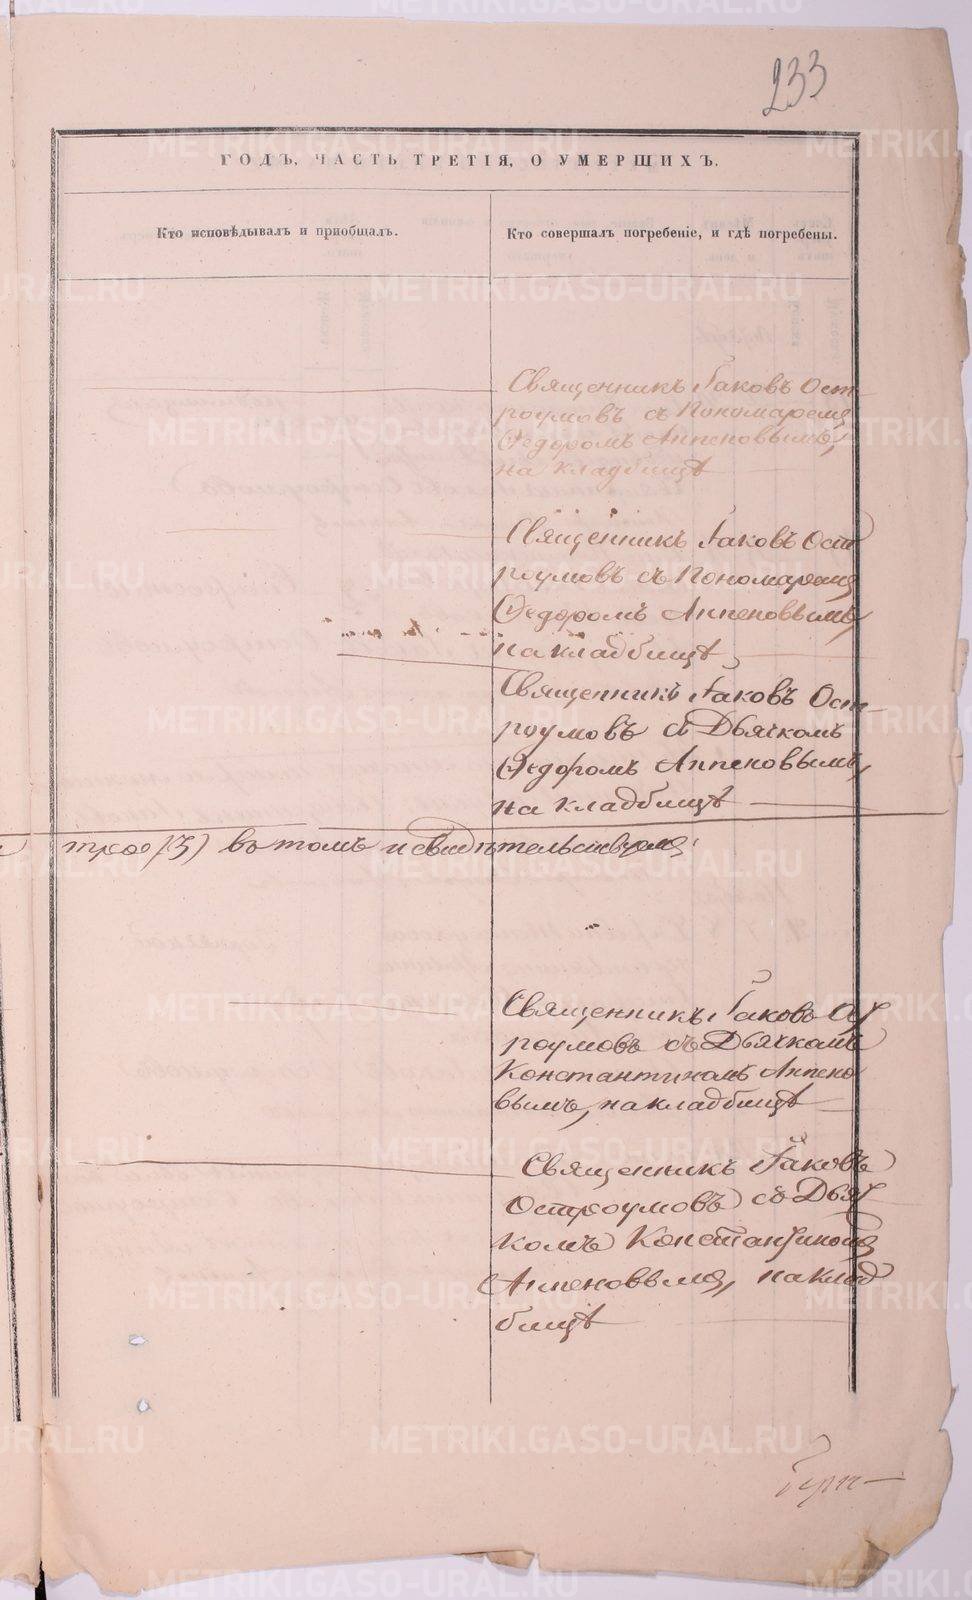 233
ГОДЪ, ЧАСТЬ ТРЕТІЯ, О УМЕРШИХЪ.
Кто исповѣдывалъ и приобщалъ.
Кто совершалъ погребеніе, и гдѣ погребены.
Священникъ Іаковъ Ост
роумовъ съ Пономаремъ
Ѳедоромъ Аппеновымъ,
на кладбищѣ
Священникъ Іаковъ Ост
роумовъ съ Пономаремъ
Ѳедоромъ Аппеновымъ,
на кладбищѣ
Священникъ Іаковъ Ост
роумовъ съ Дьячкомъ
Ѳедоромъ Аппеновымъ,
на кладбищѣ
трое (3) въ томъ и свидѣтельствуемъ:
Священникъ Іаковъ Ост
роумовъ съ Дьячкомъ
Константиномъ Аппено
вымъ, на кладбищѣ
Священникъ Іаковъ
Остроумовъ съ Дьяч
комъ Константиномъ
Аппеновымъ, на клад
бищѣ
METRIKI.GASO-URAL.RU